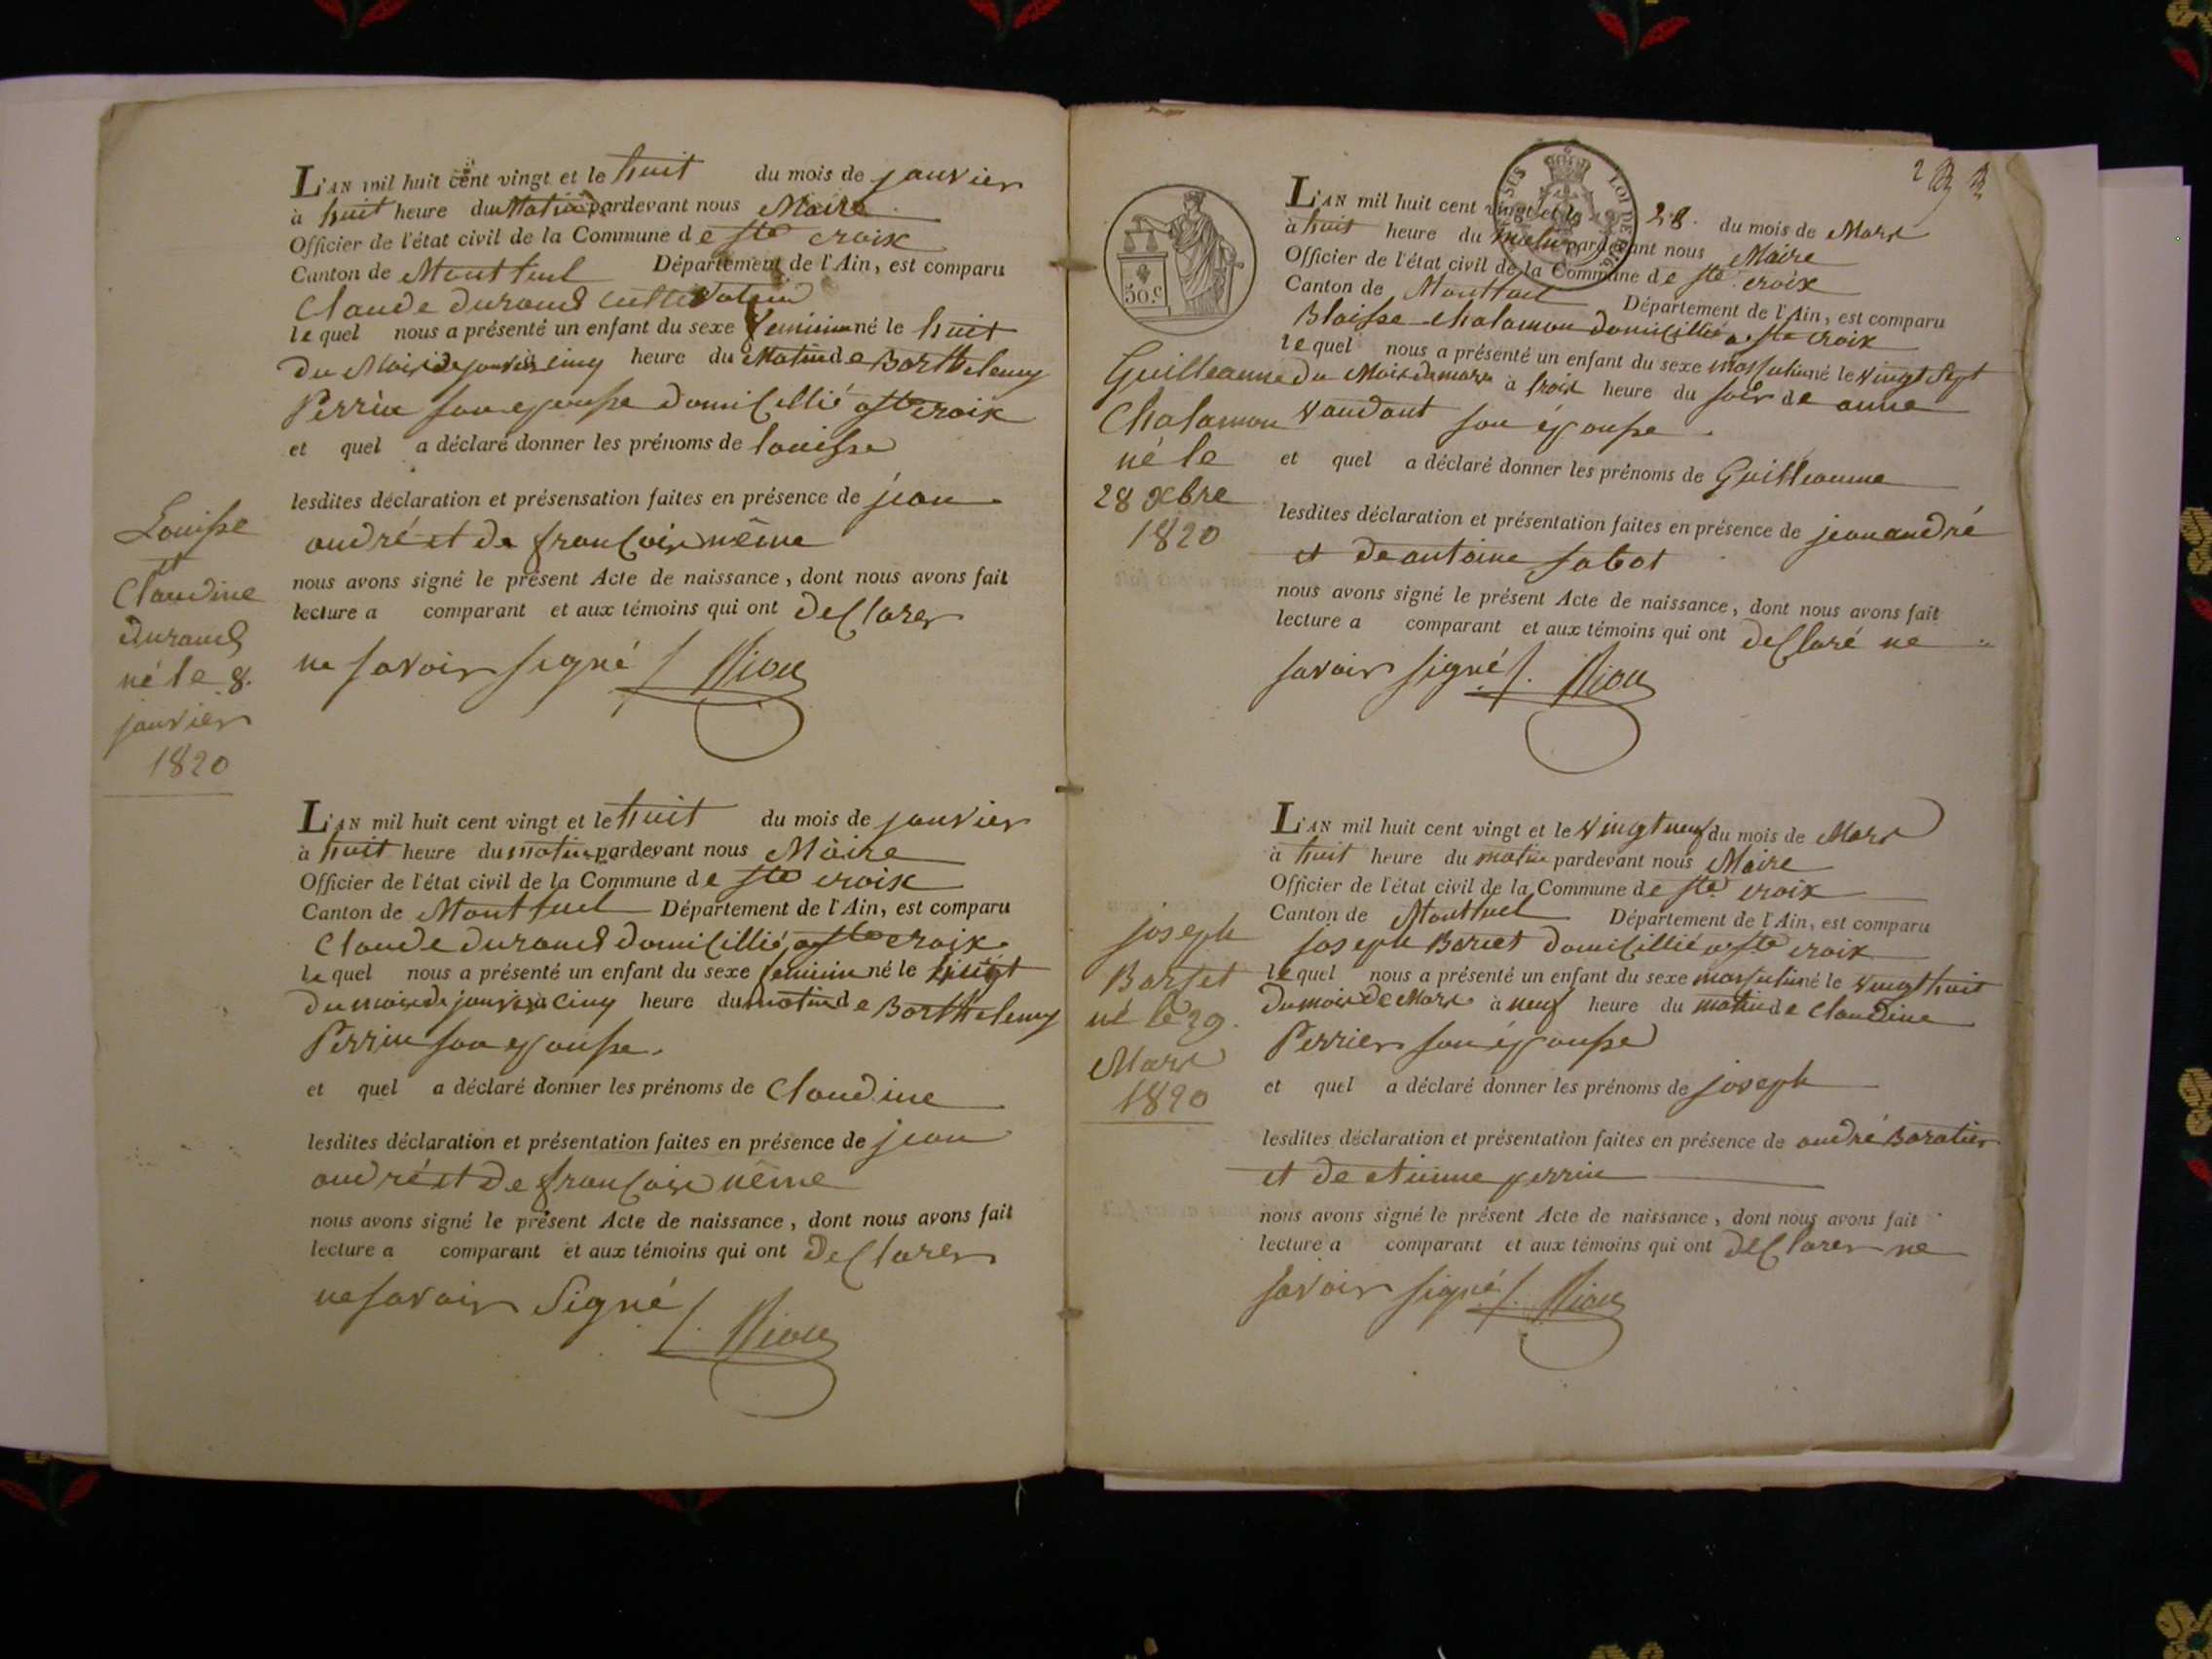 L'AN mil huit cent vingt et le huit du mois de janvier
à huit heure du Matin pardevant nous Maire
Officier de l'état civil de la Commune de Ste croix
Canton de Montluel Département de l'Ain, est comparu
Claude durand cultivateur
le quel nous a présenté un enfant du sexe feminin né le huit
du Mois de janvier a cinq heure du Matin de Barthelemy
Perrin son epousse domicillié a Ste croix
et quel a déclaré donner les prénoms de louisse
lesdites déclaration et présensation faites en présence de jean
andré et de francois même
nous avons signé le présent Acte de naissance, dont nous avons fait
lecture a comparant et aux témoins qui ont declarer
ne savoir signé
Louisse
et
Claudine
durand
né le 8.
janvier
1820
L'AN mil huit cent vingt et le huit du mois de janvier
à huit heure du matin pardevant nous Maire
Officier de l'état civil de la Commune de Ste croix
Canton de Montluel Département de l'Ain, est comparu
Claude durand domicillié a Ste croix
le quel nous a présenté un enfant du sexe feminin né le
du mois de janvier a cinq heure du matin de Barthelemy
Perrin son epousse.
et quel a déclaré donner les prénoms de Claudine
lesdites déclaration et présentation faites en présence de jean
andré et de francois même
nous avons signé le présent Acte de naissance, dont nous avons fait
lecture a comparant et aux témoins qui ont declarer
ne savoir Signé
50.c
LOI DE
L'AN mil huit cent vingt et le 28. du mois de Mars
à huit heure du matin pardevant nous Maire
Officier de l'état civil de la Commune de ste croix
Canton de Montluel Département de l'Ain, est comparu
Blaisse chalamon domicillié a ste croix
le quel nous a présenté un enfant du sexe massculin né le vingt sept
du Mois de mars à trois heure du soir de anne
vaudant son épousse.
et quel a déclaré donner les prénoms de Guilleaume
lesdites déclaration et présentation faites en présence de jean andré
et de antoine sabot
nous avons signé le présent Acte de naissance, dont nous avons fait
lecture a comparant et aux témoins qui ont declaré ne
savoir signé
Guilleaume
Chalamon
né le
28 xbre
1820
L'AN mil huit cent vingt et le vingt neuf du mois de Mars
à huit heure du matin pardevant nous Maire
Officier de l'état civil de la Commune de ste croix
Canton de Montluel Département de l'Ain, est comparu
joseph Barset domicillié a ste croix
le quel nous a présenté un enfant du sexe massculin né le vingt huit
du mois de Mars à neuf heure du matin de Claudine
Perrier son épousse
et quel a déclaré donner les prénoms de joseph
lesdites déclaration et présentation faites en présence de andré Baratier
et de etienne perrin
nous avons signé le présent Acte de naissance, dont nous avons fait
lecture a comparant et aux témoins qui ont declarer ne
savoir signé
joseph
Barset
né le 29.
Mars
1820